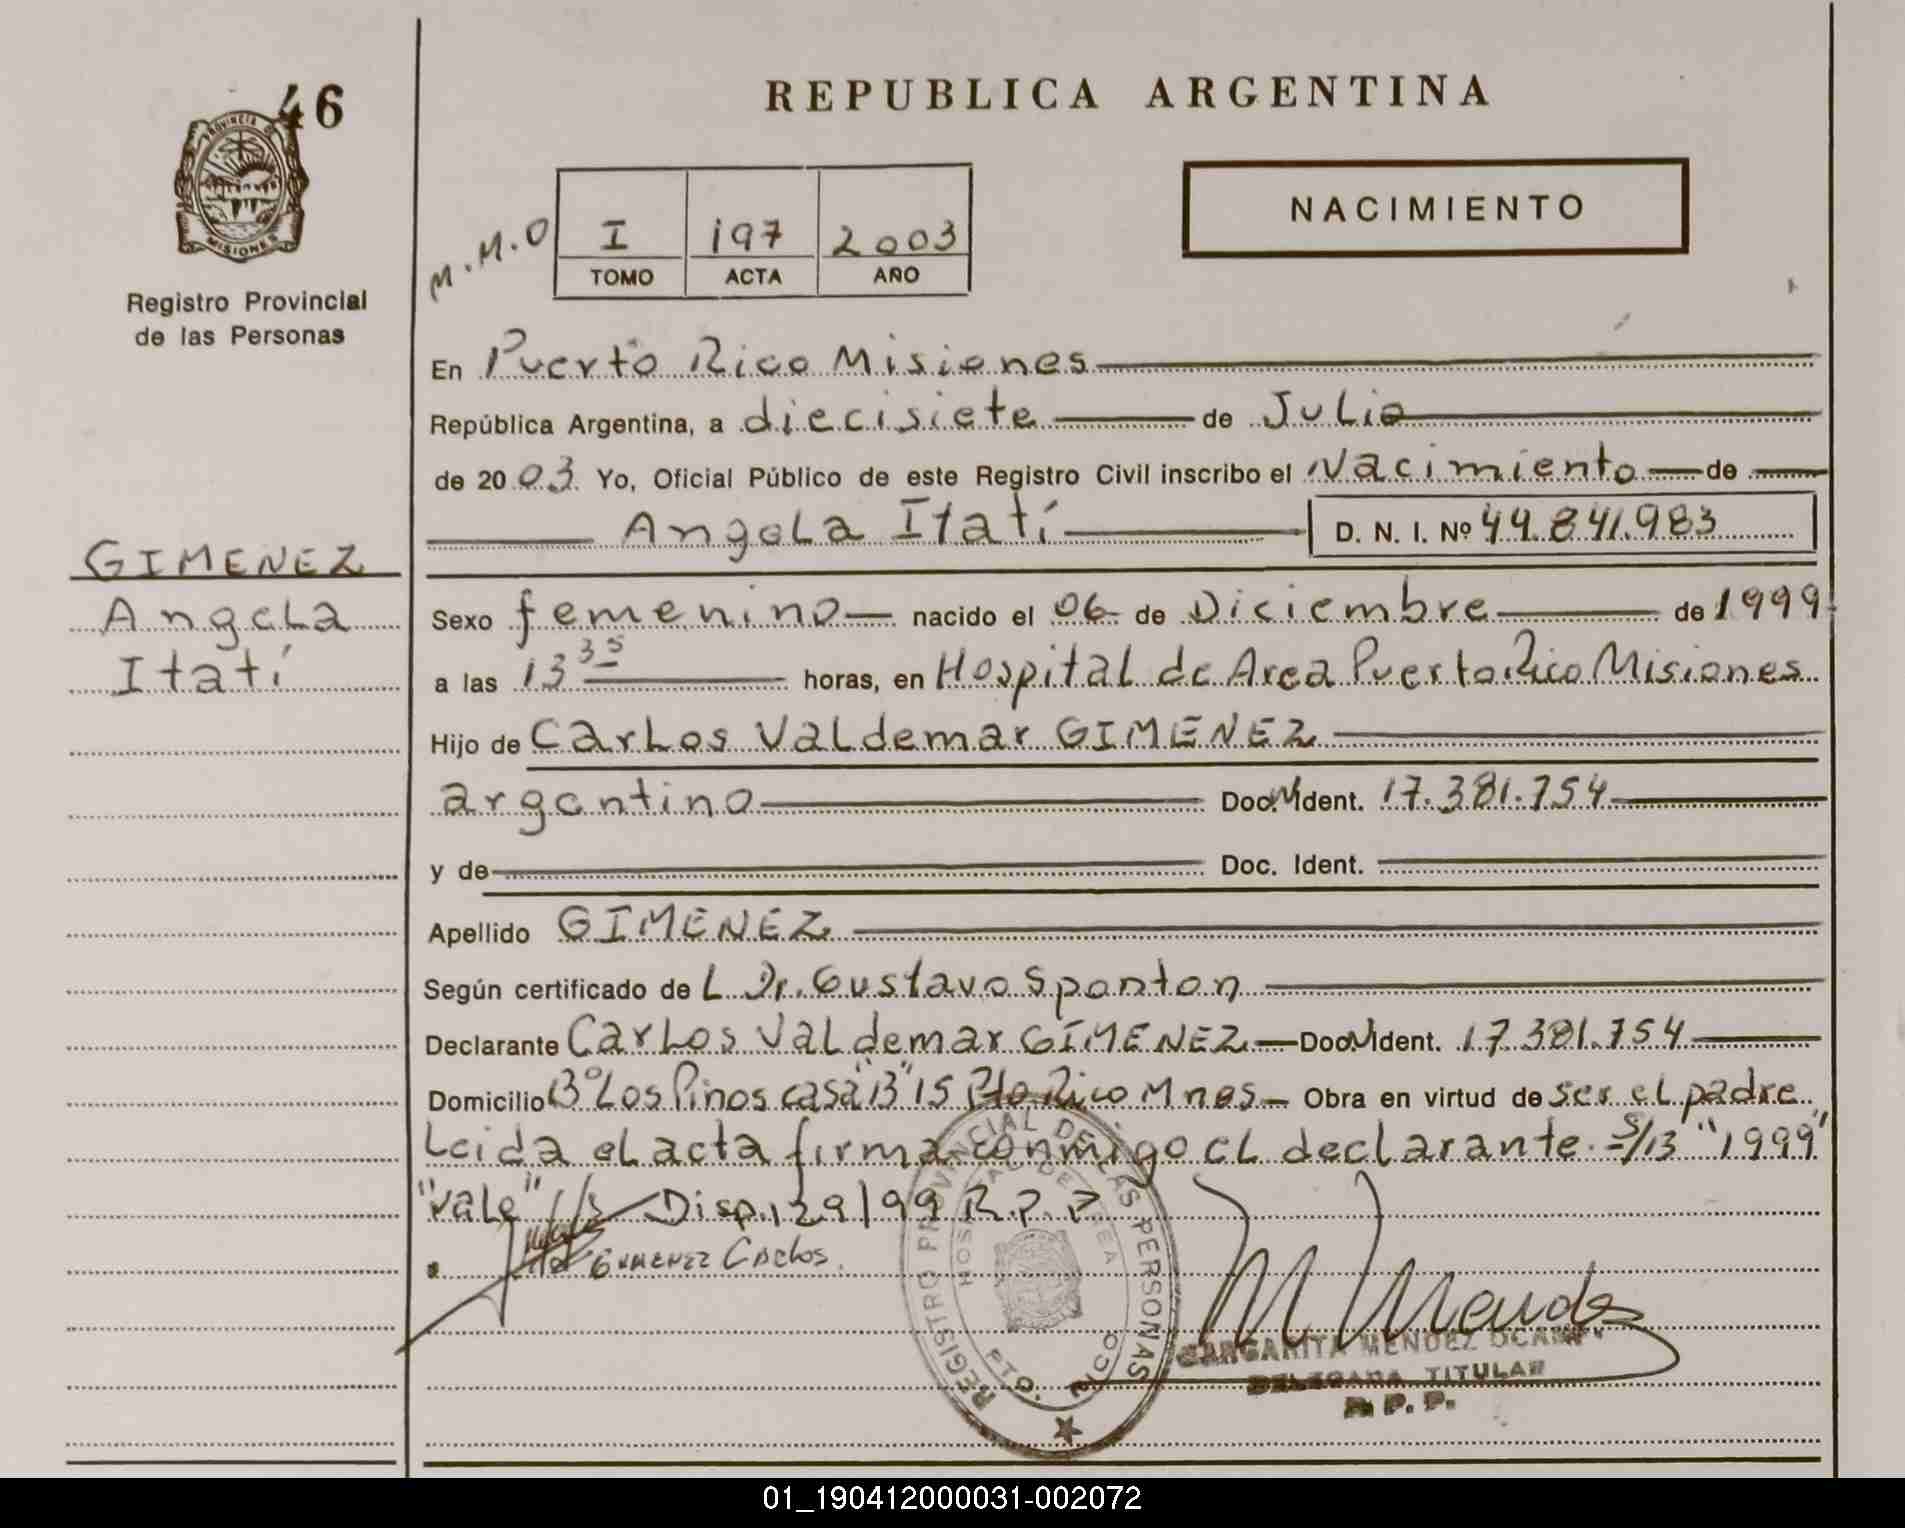 46
PROVINCIA DE
MISIONES
Registro Provincial
de las Personas
GIMENEZ
Angela
Itatí
REPUBLICA ARGENTINA
NACIMIENTO
M.M.O
I 197 2003
TOMO ACTA AÑO
En Puerto Rico Misiones
República Argentina, a diecisiete de Julio
de 2003 Yo, Oficial Público de este Registro Civil inscribo el Nacimiento de
Angela Itatí D. N. I. Nº 44.841.983
Sexo femenino nacido el 06 de Diciembre de 1999
a las 13 35 horas, en Hospital de Area Puerto Rico Misiones
Hijo de Carlos Valdemar GIMENEZ
argentino Doc. Ident. 17.381.754
y de Doc. Ident.
Apellido GIMENEZ
Según certificado de L Dr. Gustavo Sponton
Declarante Carlos Valdemar GIMENEZ Doc. Ident. 17.381.754
Domicilio Bº Los Pinos casa "B" 15 Pto Rico Mnes Obra en virtud de ser el padre
Leida el acta firma conmigo el declarante. S/B "1999"
"vale" Disp. 129/99 R.P.P
GIMENEZ Carlos
REGISTRO PROVINCIAL DE LAS PERSONAS
PTO. RICO
M Mendez
MARGARITA MENDEZ OCAMPO
DELEGADA TITULAR
R. P. P.
01_190412000031-002072